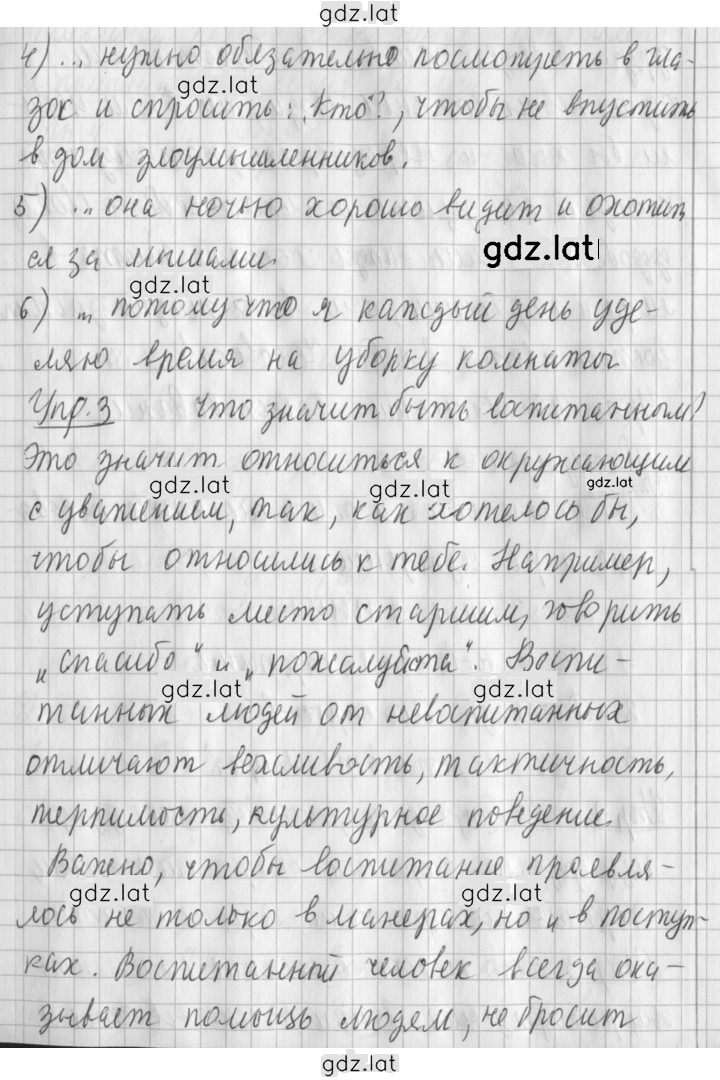 gdz.lat
4) ... нужно обязательно посмотреть в гла-
gdz.lat
зок и спросить: „Кто"?, чтобы не впустить
в дом злоумышленников.
5) ... она ночью хорошо видит и охотит
gdz.lat
ся за мышами.
gdz.lat
6) ... потому что я каждый день уде-
ляю время на уборку комнаты
Упр. 3 Что значит быть воспитанным?
gdz.lat gdz.lat
Это значит относиться к окружающим
gdz.lat gdz.lat gdz.lat
с уважением, так, как хотелось бы,
чтобы относились к тебе. Например,
уступать место старшим, говорить
„спасибо" и „пожалуйста". Воспи-
gdz.lat gdz.lat
танных людей от невоспитанных
отличают вежливость, тактичность,
терпимость, культурное поведение.
Важно, чтобы воспитание проявля-
gdz.lat gdz.lat
лось не только в манерах, но и в поступ-
ках. Воспитанный человек всегда ока-
зывает помощь людям, не бросит
gdz.lat